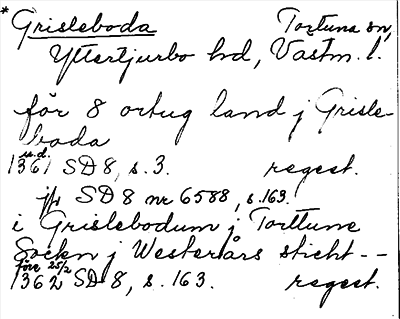 * Grisleboda Tortuna sn,
Yttertjurbo hd, Västm. l.
för 8 ortug land j Grisle-
boda
u.d.
1361 SD 8, s. 3. regest.
jfr SD 8 nr 6588, s. 163.
i Grislebodum j Torttune
Sockn j Westerårs sticht --
före 25/2
1362 SD 8, s. 163. regest.